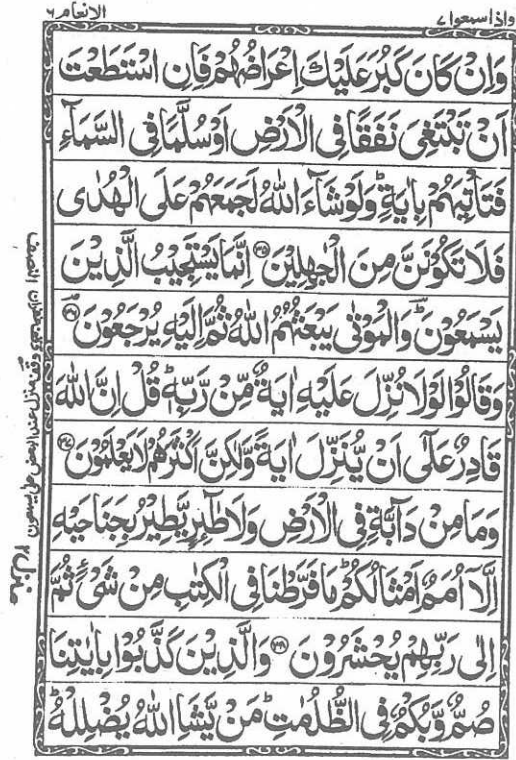 واذا سمعوا ٧
الانعام ٦
وَاِنْ كَانَ كَبُرَ عَلَيْكَ اِعْرَاضُهُمْ فَاِنِ اسْتَطَعْتَ
اَنْ تَبْتَغِیَ نَفَقًا فِی الْاَرْضِ اَوْ سُلَّمًا فِی السَّمَآءِ
فَتَاْتِیَهُمْ بِاٰیَةٍ ؕ وَلَوْ شَآءَ اللّٰهُ لَجَمَعَهُمْ عَلَی الْهُدٰی
فَلَا تَكُوْنَنَّ مِنَ الْجٰهِلِیْنَ ۝۳۵ اِنَّمَا یَسْتَجِیْبُ الَّذِیْنَ
یَسْمَعُوْنَ ؔؕ وَالْمَوْتٰی یَبْعَثُهُمُ اللّٰهُ ثُمَّ اِلَیْهِ یُرْجَعُوْنَ ۝۳۶
وَقَالُوْا لَوْلَا نُزِّلَ عَلَیْهِ اٰیَةٌ مِّنْ رَّبِّهٖ ؕ قُلْ اِنَّ اللّٰهَ
قَادِرٌ عَلٰۤی اَنْ یُّنَزِّلَ اٰیَةً وَّلٰكِنَّ اَكْثَرَهُمْ لَا یَعْلَمُوْنَ ۝۳۷
وَمَا مِنْ دَآبَّةٍ فِی الْاَرْضِ وَلَا طٰٓئِرٍ یَّطِیْرُ بِجَنَاحَیْهِ
اِلَّاۤ اُمَمٌ اَمْثَالُكُمْ ؕ مَا فَرَّطْنَا فِی الْكِتٰبِ مِنْ شَیْءٍ ثُمَّ
اِلٰی رَبِّهِمْ یُحْشَرُوْنَ ۝۳۸ وَالَّذِیْنَ كَذَّبُوْا بِاٰیٰتِنَا
صُمٌّ وَّبُكْمٌ فِی الظُّلُمٰتِ ؕ مَنْ یَّشَاِ اللّٰهُ یُضْلِلْهُ ؕ
منزل ٢